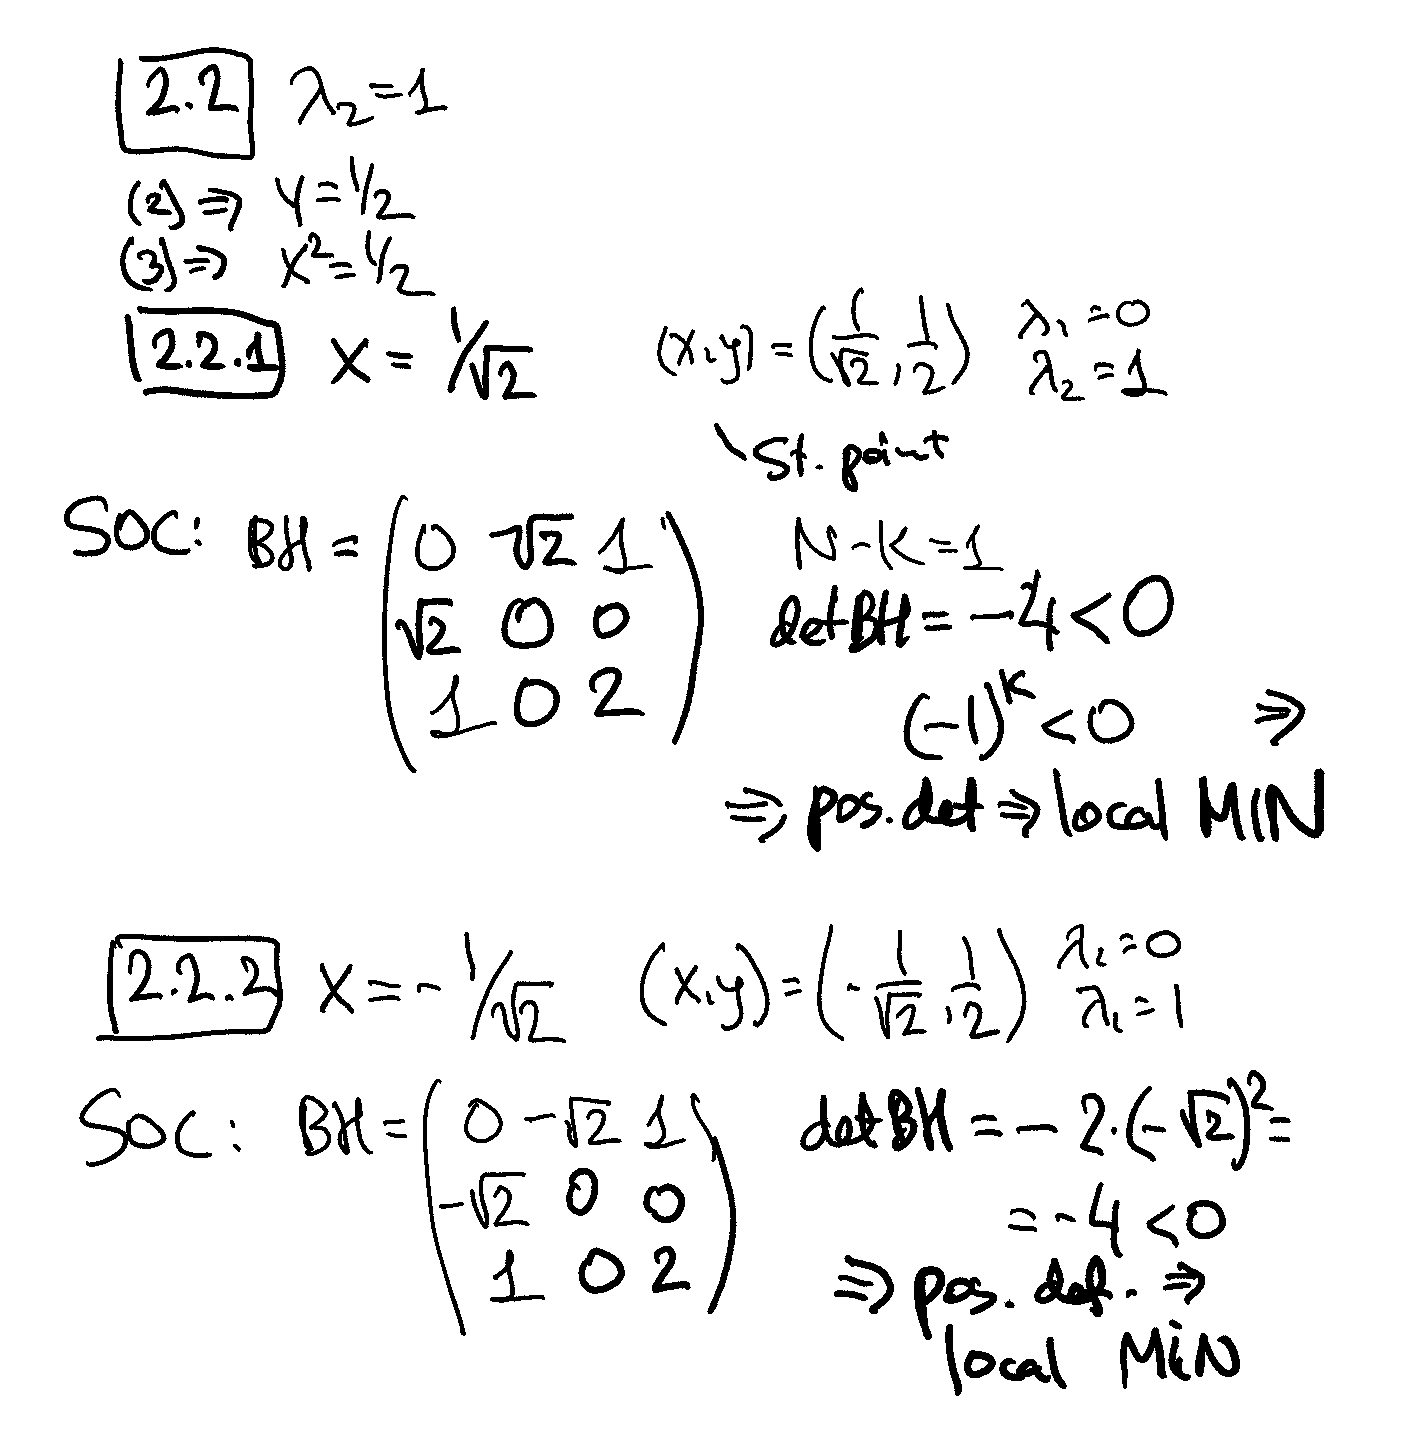 2.2 λ₂=1
(2) ⇒ y=1/2
(3) ⇒ x²=1/2
2.2.1 x = 1/√2 (x,y) = (1/√2, 1/2) λ₁=0 λ₂=1
St. point
SOC: BH = (0 √2 1
√2 0 0
1 0 2)
N-K=1
det BH = -4<0
(-1)ᴷ<0 ⇒
⇒ pos. det ⇒ local MIN
2.2.2 x=-1/√2 (x,y)=(-1/√2, 1/2) λ₁=0 λ₁=1
SOC: BH=(0 -√2 1
-√2 0 0
1 0 2)
det BH = -2·(-√2)²=
=-4<0
⇒ pos. def. ⇒
local MiN